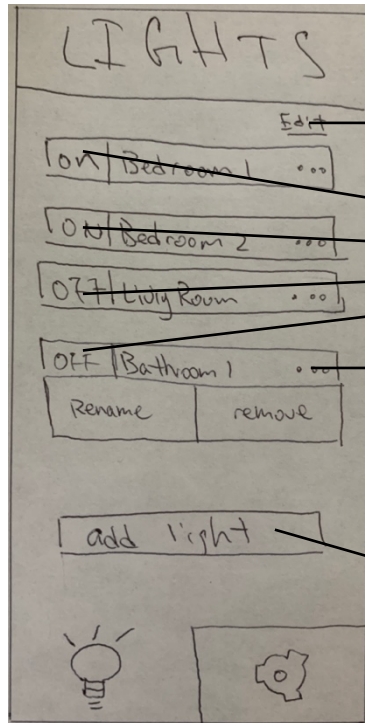 LIGHTS
Edit
ON Bedroom 1 ...
ON Bedroom 2 ...
OFF Livig Room ...
OFF Bathroom 1 ...
Rename remove
add light